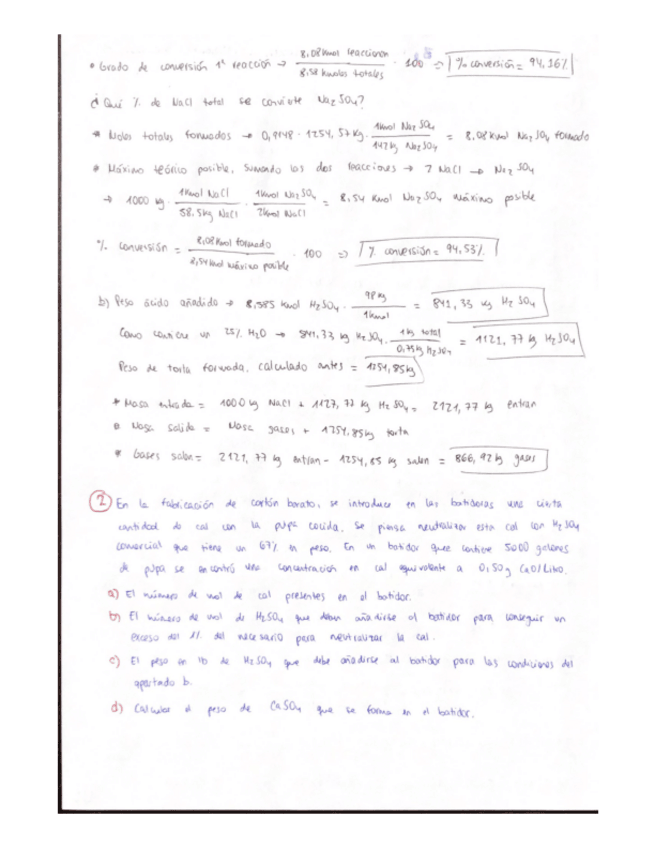 • Grado de conversión 1ª reacción → 8,08 kmol reaccionan / 8,58 kmoles totales · 100 => % conversión = 94,16%
¿Qué % de NaCl total se convierte Na2SO4?
* Moles totales formados → 0,9148 · 1254,57 kg · 1kmol Na2SO4 / 142 kg Na2SO4 = 8,08 kmol Na2SO4 formado
* Máximo teórico posible, sumando las dos reacciones → 2 NaCl → Na2SO4
→ 1000 kg · 1kmol NaCl / 58.5kg NaCl · 1kmol Na2SO4 / 2kmol NaCl = 8,54 kmol Na2SO4 máximo posible
% conversión = 8,08 kmol formado / 8,54 kmol máximo posible · 100 => % conversión = 94,53%
b) Peso ácido añadido → 8,585 kmol H2SO4 · 98 kg / 1kmol = 841,33 kg H2SO4
Como contiene un 25% H2O → 841,33 kg H2SO4 · 1 kg total / 0,75 kg H2SO4 = 1121,77 kg H2SO4
Peso de torta formada, calculado antes = 1254,85kg
* Masa entrada = 1000 kg NaCl + 1121,77 kg H2SO4 = 2121,77 kg entran
• Masa salida = Masa gases + 1254,85kg torta
* Gases salen = 2121,77 kg entran - 1254,85 kg salen = 866,92 kg gases
2 En la fabricación de cartón barato, se introduce en las batidoras una cierta
cantidad de cal con la pulpa cocida. Se piensa neutralizar esta cal con H2SO4
comercial que tiene un 67% en peso. En un batidor que contiene 5000 galones
de pulpa se encontró una concentración en cal equivalente a 0,50g CaO/Litro.
a) El número de mol de cal presentes en el batidor.
b) El número de mol de H2SO4 que deben añadirse al batidor para conseguir un
exceso del 1% del necesario para neutralizar la cal.
c) El peso en lb de H2SO4 que debe añadirse al batidor para las condiciones del
apartado b.
d) Calcular el peso de CaSO4 que se forma en el batidor.